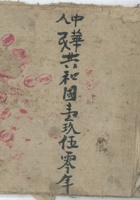 中華人民共和國壹玖伍零年